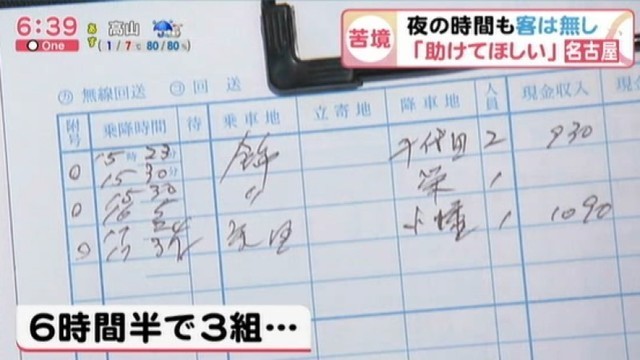 6:39
One
あす
高山
(1/7℃ 80/80%)
苦境
夜の時間も客は無し
「助けてほしい」
名古屋
無線回送
回 送
附号
乗降時間
待
乗車地
立寄地
降車地
人員
現金収入
現金
0 15時23分 千代田 2 930
15 30分
0 15 30 〃 栄 1
17 32 1 1090
6時間半で3組…